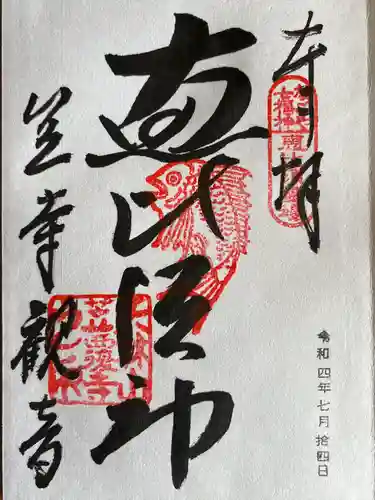 奉拝
恵比須神
笠寺観音
令和四年七月拾四日